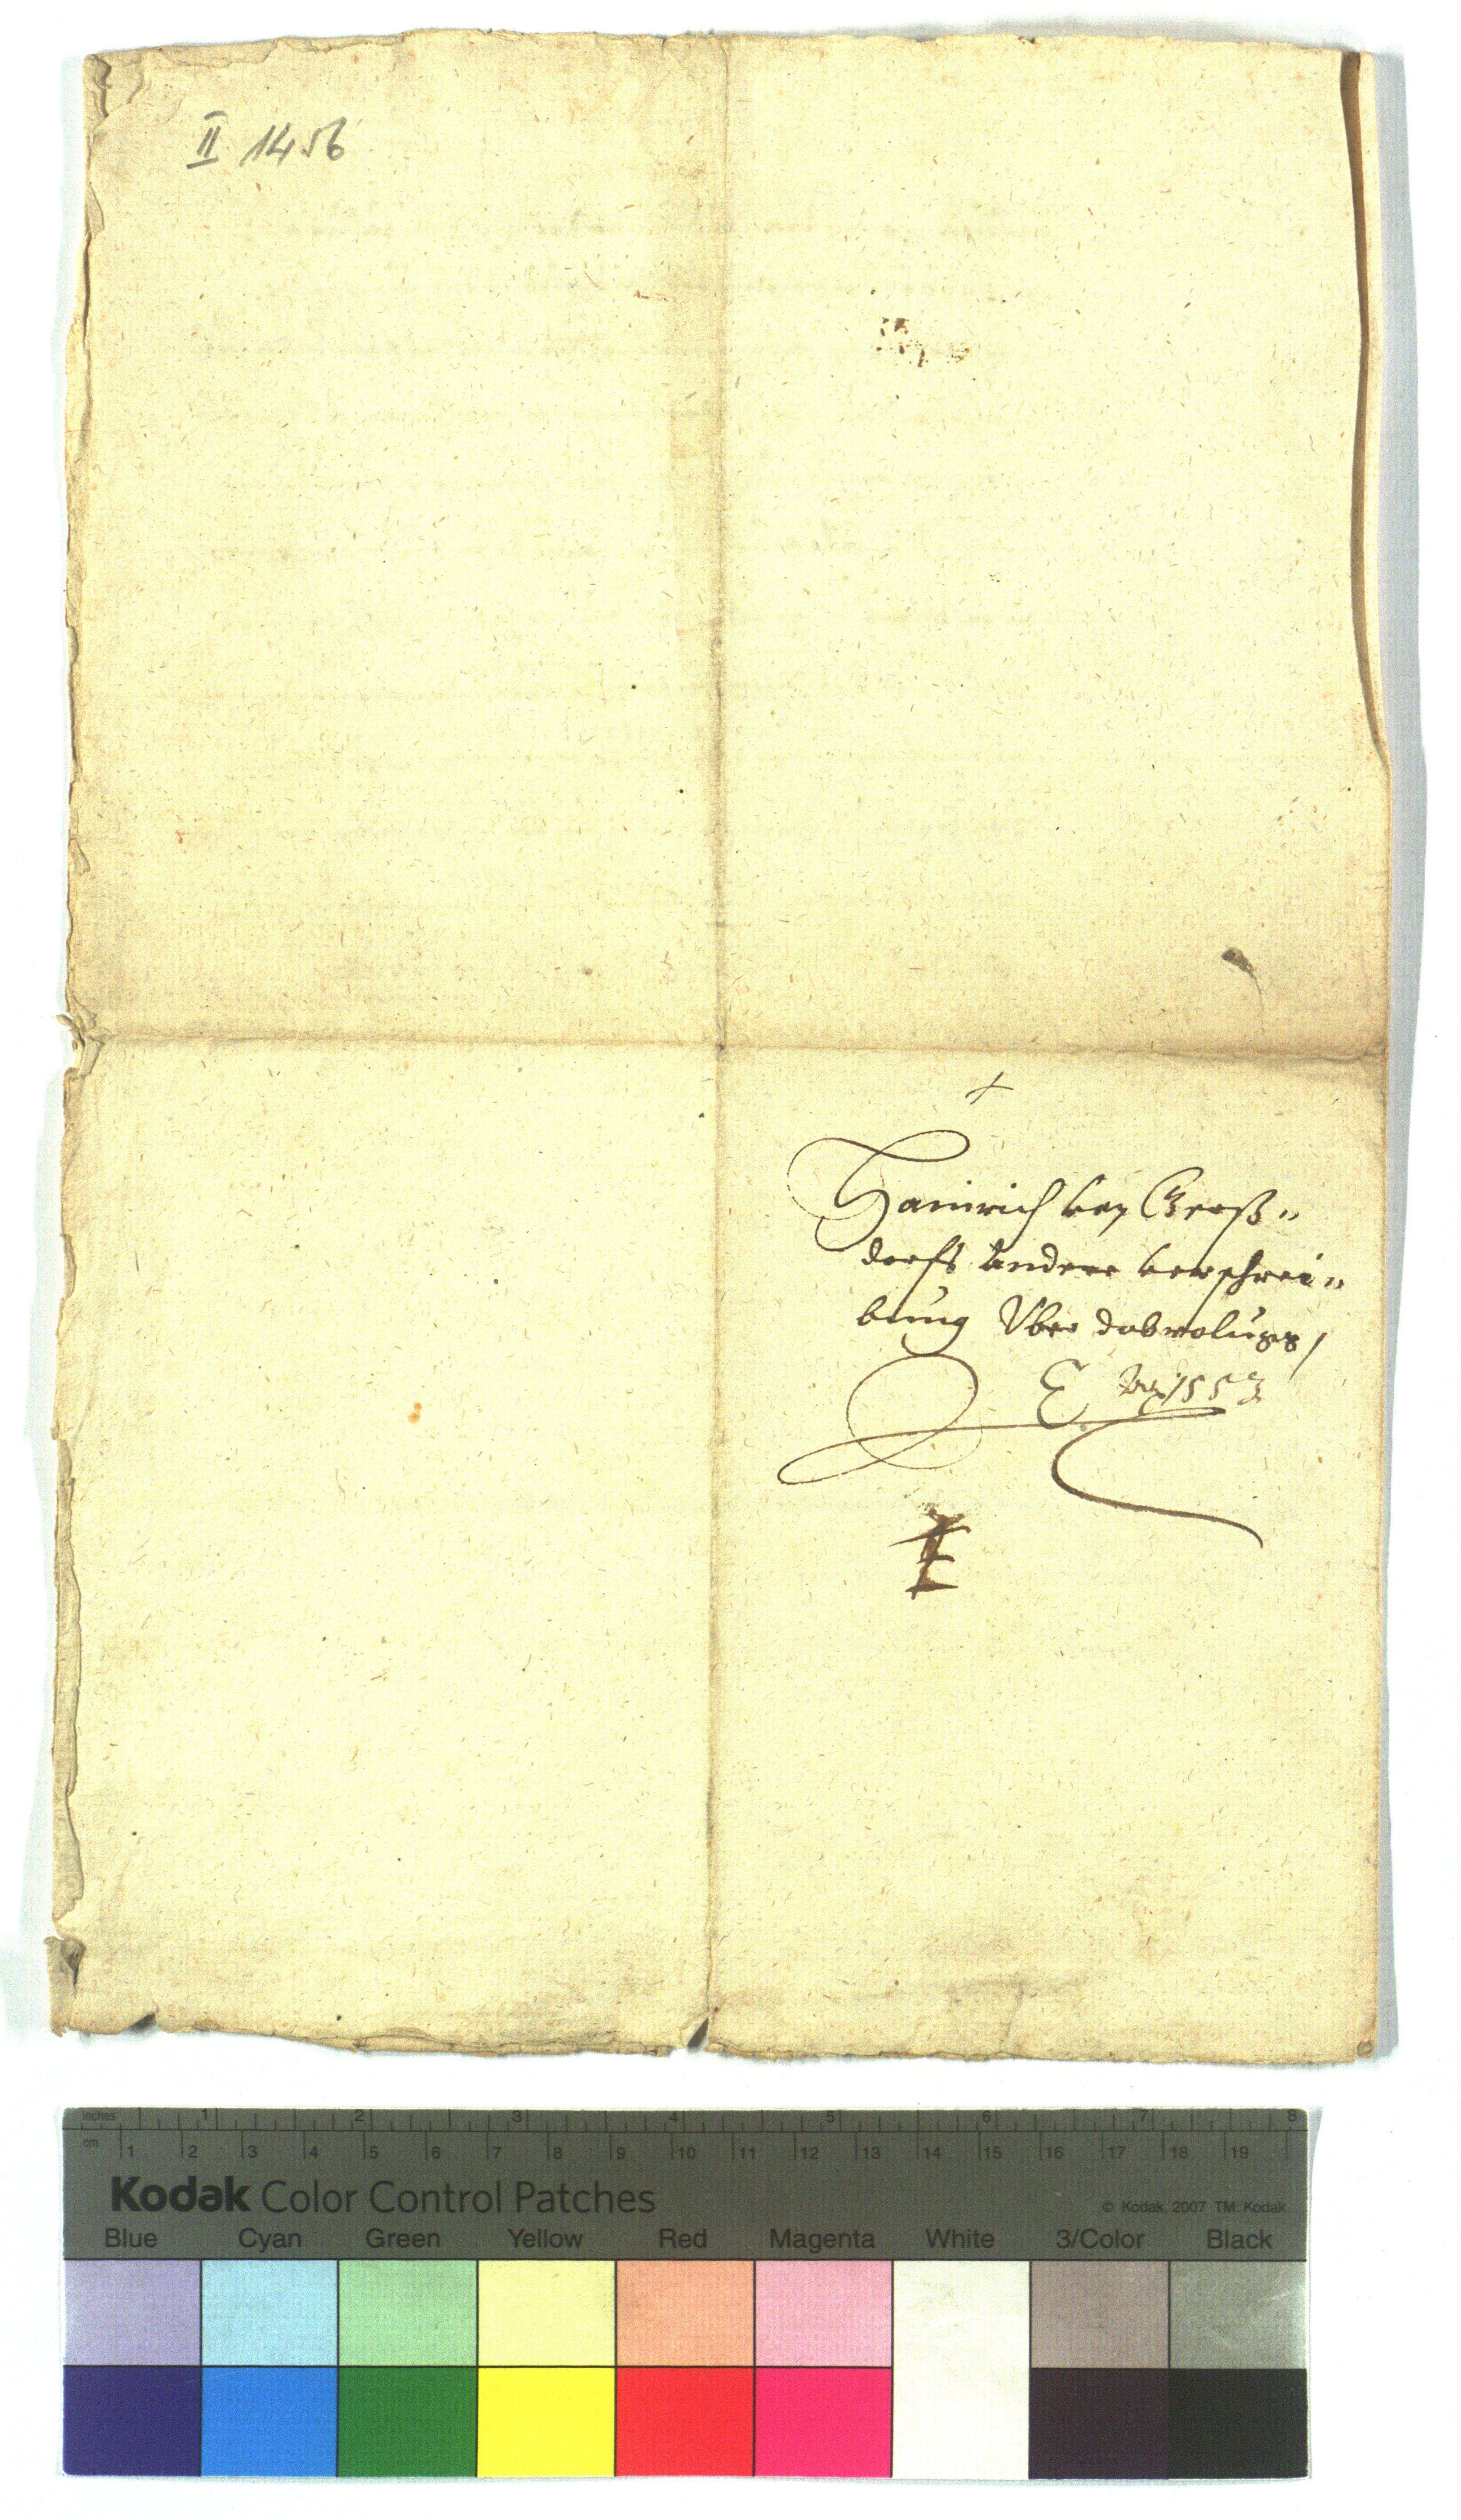 II 1456
+
Hainrich von Gerß„
dorfs andere verschrei„
bung Vber dobroluss /
E 1553
inches 1 2 3 4 5 6 7 8
cm 1 2 3 4 5 6 7 8 9 10 11 12 13 14 15 16 17 18 19
Kodak Color Control Patches © Kodak, 2007 TM: Kodak
Blue Cyan Green Yellow Red Magenta White 3/Color Black